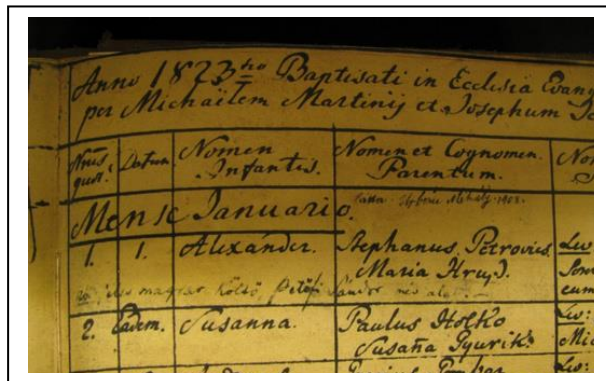 Anno 1823tio Baptisati in Ecclesia Evang
per Michaëlem Martiny et Josephum
Nrus Datum. Nomen Infantis. Nomen et Cognomen Parentum.
Mense Januario.
1. 1. Alexander. Stephanus Petrovics
Maria Hruz.
magyar költő Petőfi Sándor
2. Eadem. Susanna. Paulus Holko
Susaña Gyurik